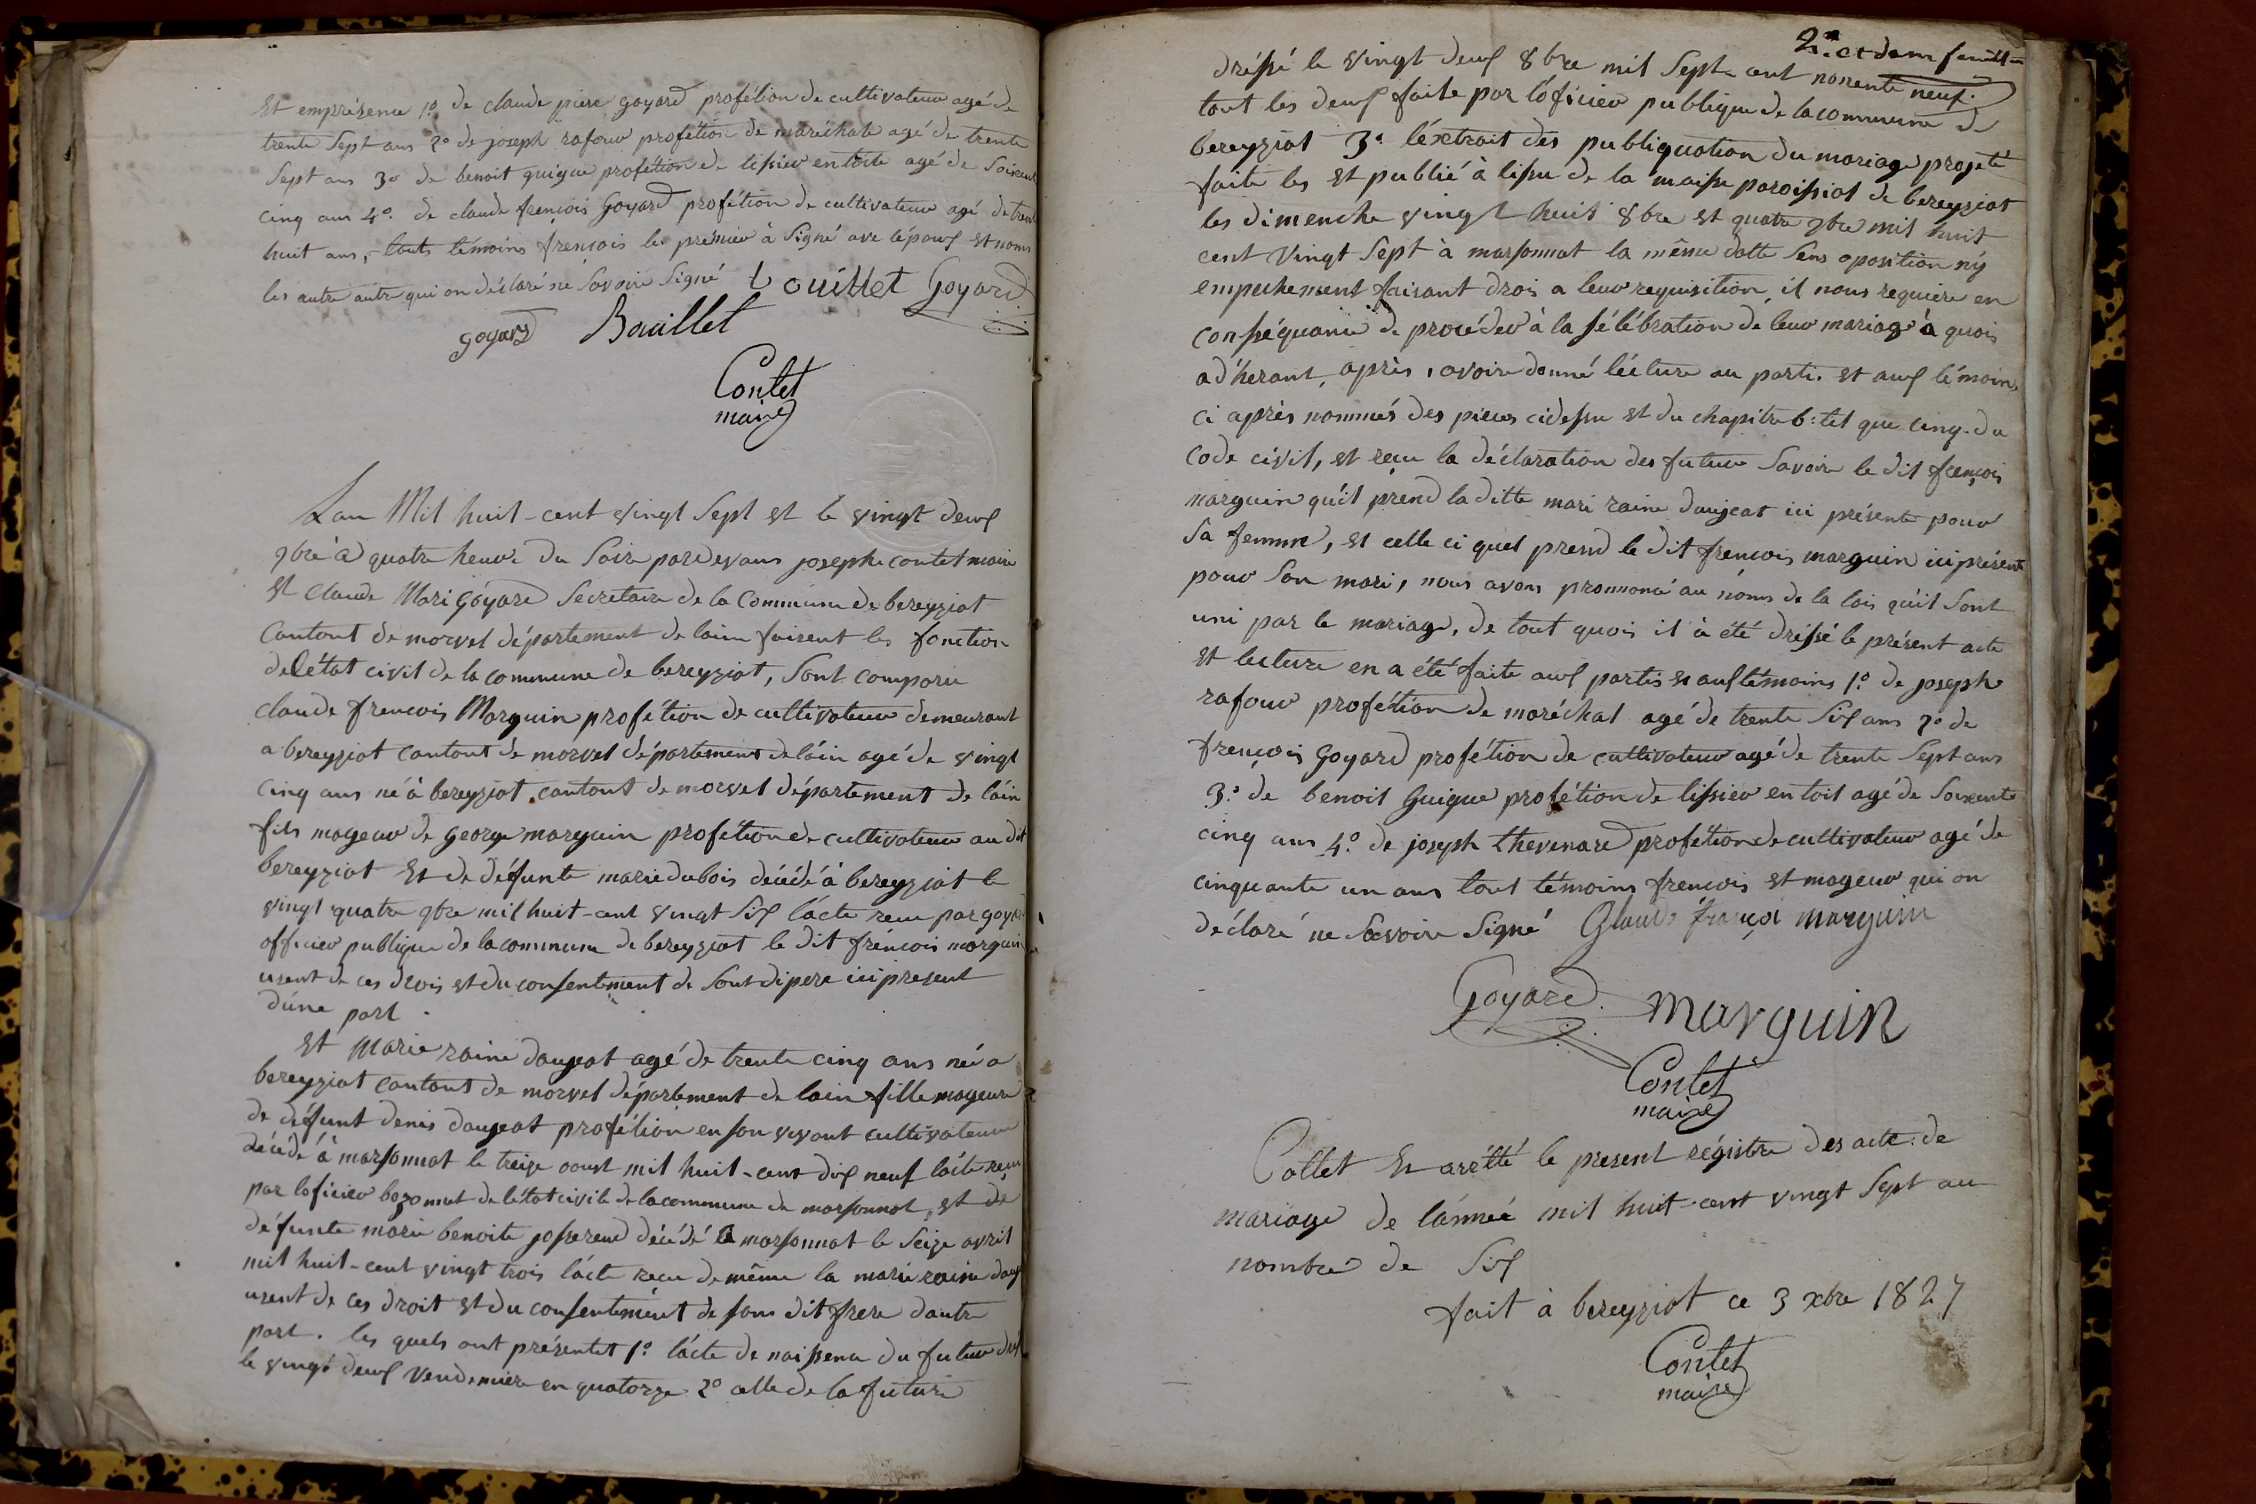 Et emprésence 1o. de claude piere goyard profétion de cultivateur agé de
trente Sept ans 2o de joseph rafour profétion de maréchale agé de trente
Sept ans 3o de benoit guigue profétion de tissier en toite agé de Soixente
cinq ans 4o. de claude frençois Goyard profétion de cultivateur agé de trente
huit ans, touts témoins frençois les premier à Signé ave lépoux et nous
les autre autre qui on déclaré né Savoir Signé Louillet Goyard
goyard Bouillet
Contet
maire
Lan Mil huit-cent vingt Sept et le vingt deux
9bre à quatre heure du Soir pardevans joseph contet maire
et claude Mari Goyard Secretaire de la Commune de bereyziat
Cantont de morvel département de lain faisent les fonction
de létat civil de la commune de bereyziat, Sont comparu
claude frencois Marguin profétion de cultivateur demeurant
a bereyziat cantont de morvel département de láin agé de vingt
cinq ans né à bereyziat cantont de morvel département de láin
fils mageur de george marguin profétion de cultivateur au dit
bereyziat Et de défunte marie dubois décédé à bereyziat le
vingt quatre 9bre mil huit-cent vingt Six lácte recu par goyard
officier publique de la commune de bereyziat le dit fréncois marguin
usent de ces drois et du consentement de Sont dipere ici present
dúne part.
Et Marie raine daujeat agé de trente cinq ans né a
bereyziat cantont de morvel département de lain fille mageure
de défunt denis daujeat profétion en son vivant cultivateur
décédé à marsonnat le treize aoust mil huit-cent dix neuf lácte reçu
par loficier bozonnet de létat civile de la commune de marsonnat, et de
défunte marie benoite josserend décédé à marsonnat le Seize avril
mil huit-cent vingt trois lácte recu de même la marie raine dauj
usent de ces droit et du consentement de sons dit frere dautre
part. les quels ont présentet 1o. lácte de naissence du futur dré
le vingt deux vendemiere en quatorze 2o celle de la future
2e. et dem feuille
dréssé le vingt deux 8bre mil Sept-cent nonente neuf.
tout les deux faite par lóficier publique de la commune de
bereyziat 3o. léxtrait des publiquation du mariage projeté
faite les et publié à lissu de la maisse paroissial de bereyziat
les dimenche vingt huit 8bre et quatre 9bre mil huit
cent vingt Sept à marsonnat la même datte Sens oposition ny
empechement faisant drois a leur requisition, il nous requiere en
conséquance de procéder à la sélébration de leur mariage à quois
ad'herant, après avoir donné lécture au parti. et aux témoins,
ci après nommés des pieces cidessu et du chapitre 6: tet que cinq. du
Code civil, et reçu la déclaration des futur Savoir le dit frençois
marguin quil prend la ditte mari raine daujeat ici présente pour
Sa femme, et celle ci quel prend le dit frencois marguin ici présent
pour Son mari, nous avons prononcé au nóms de la lois quil Sont
uni par le mariage, de tout quois il à été dréssé le présent acte
et lecture en a été faite aux partis et aux témoins 1o. de joseph
rafour profétion de maréchal agé de trente Six ans 2o de
frençois Goyard profétion de cultivateur agé de trente Sept ans
3o. de benoit Guigue profétion de tissier en toit agé de Soixente
cinq ans 4o. de joseph thevenard profétion de cultivateur agé de
cinquante un ans tout témoins frencois et mageur qui on
déclaré ne Savoire Signé Claude françoi marguin
Goyard marguin
Contet
maire
Collet Et arrêtté le present régistre des acte de
mariage de lánnée mil huit-cent vingt Sept au
nombre de Six
fait à bereyziat ce 3 xbre 1827
Contet
maire